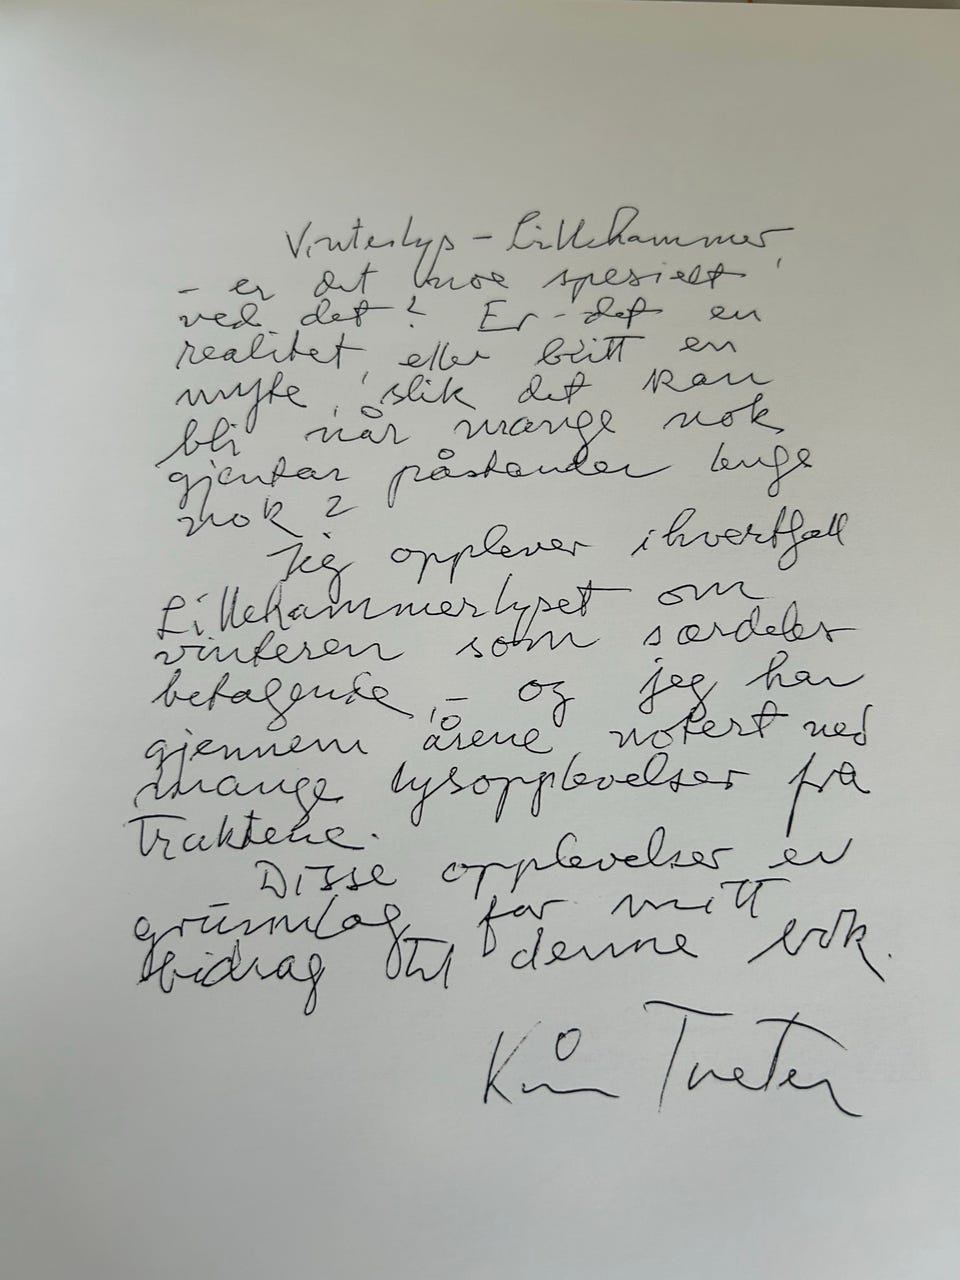 Vinterlys – Lillehammer,
– er det noe spesielt
ved det? Er det en
realitet, eller blitt en
myte, slik det kan
bli når mange nok
gjentar påstander lenge
nok?
Jeg opplever ihvertfall
Lillehammerlyset om
vinteren som særdeles
betagende, – og jeg har
gjennem årene notert ned
mange lysopplevelser fra
traktene.
Disse opplevelser er
grunnlag for mitt
bidrag til denne bok.
Kåre Tveter